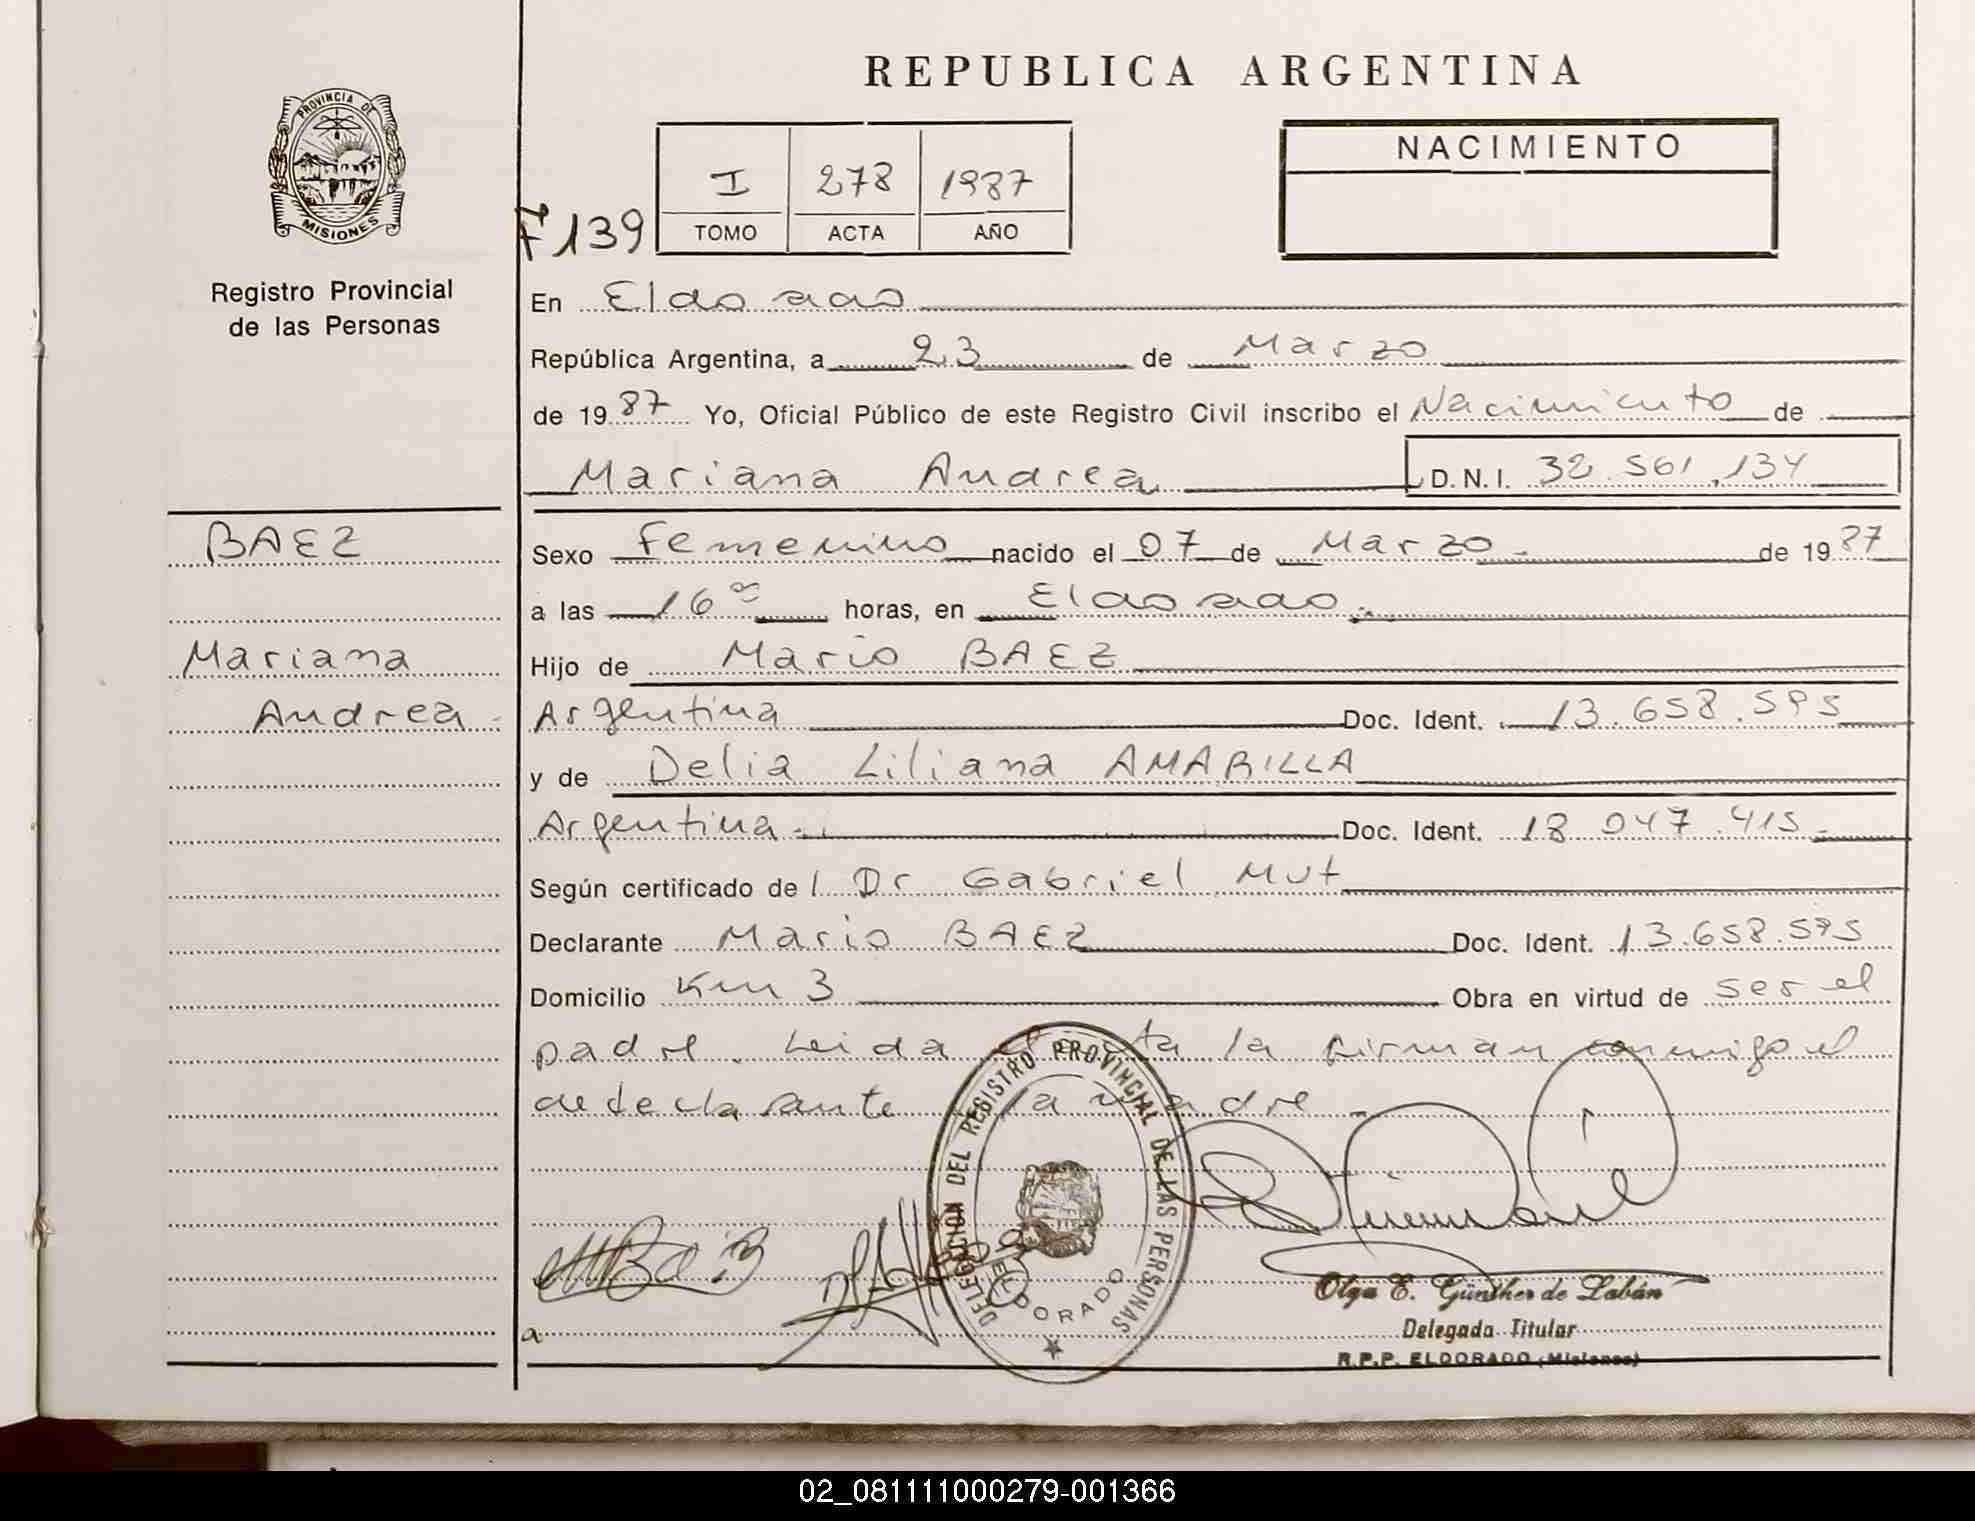 REPUBLICA ARGENTINA
PROVINCIA DE
MISIONES
Registro Provincial
de las Personas
F 139
I 278 1987
TOMO ACTA AÑO
NACIMIENTO
En Eldorado
República Argentina, a 23 de Marzo
de 1987 Yo, Oficial Público de este Registro Civil inscribo el Nacimiento de
Mariana Andrea D.N.I. 32.561.134
BAEZ
Mariana
Andrea
Sexo Femenino nacido el 07 de Marzo de 1987
a las 16 00 horas, en Eldorado
Hijo de Mario BAEZ
Argentina Doc. Ident. 13.658.595
y de Delia Liliana AMARILLA
Argentina Doc. Ident. 18.047.415
Según certificado de Dr Gabriel Mut
Declarante Mario BAEZ Doc. Ident. 13.658.595
Domicilio Km 3 Obra en virtud de ser el
padre. Leida el acta la firman conmigo el
declarante y la madre
DELEGACION DEL REGISTRO PROVINCIAL DE LAS PERSONAS
ELDORADO
Olga E. Günther de Labán
Delegada Titular
R.P.P. ELDORADO (Misiones)
02_081111000279-001366